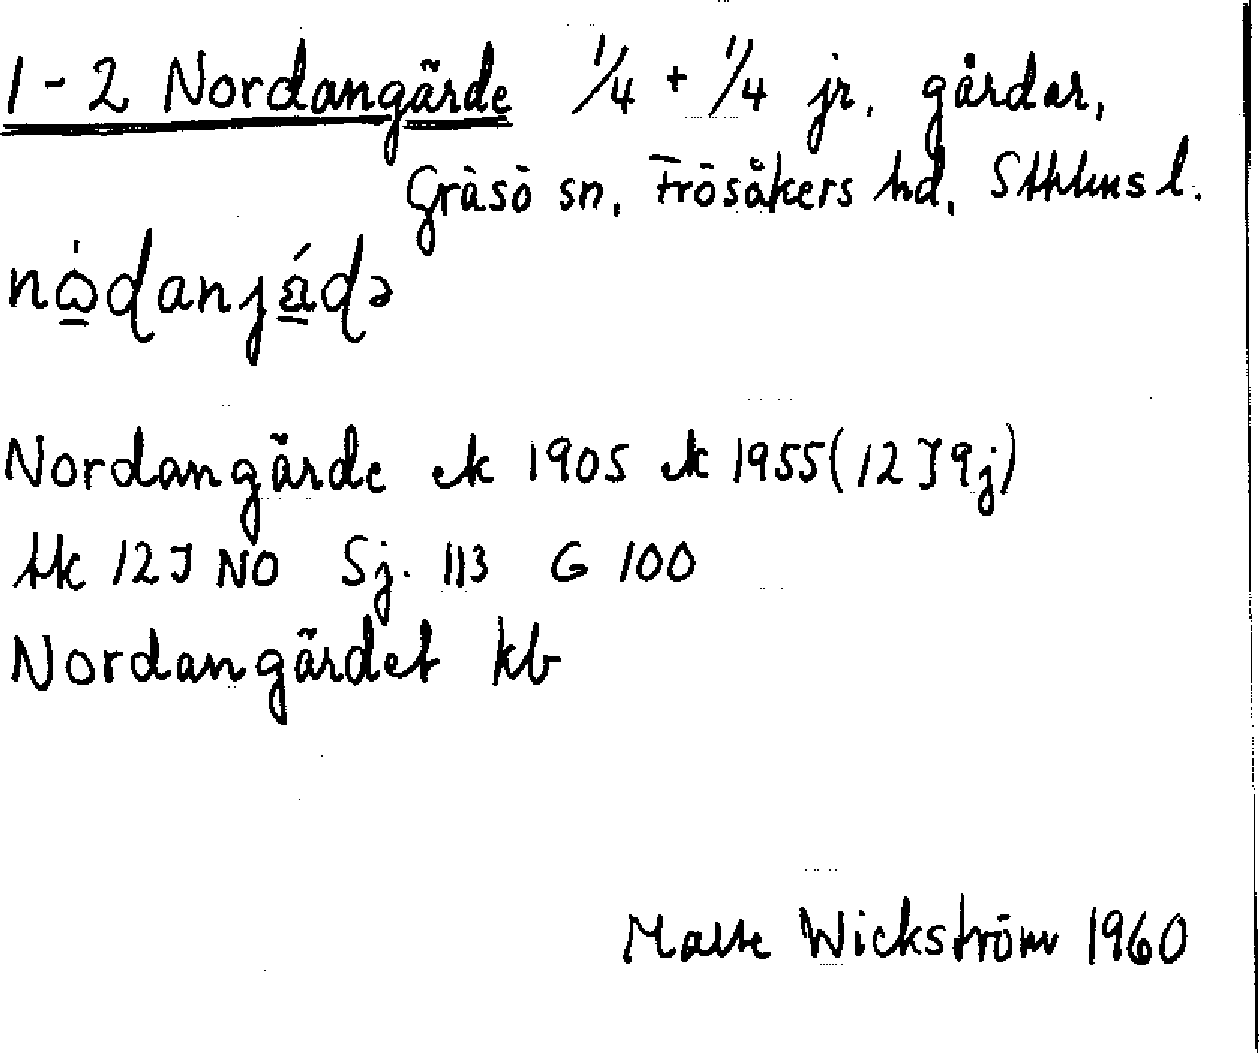 1-2 Nordangärde 1/4 + 1/4 jr. gårdar,
Gräsö sn, Frösåkers hd, Sthlms l.
Nordangärde ek 1905 ek 1955 (12 I 9j)
tk 12 I NO Sj. 113 G 100
Nordangärdet kb
Malte Wickström 1960